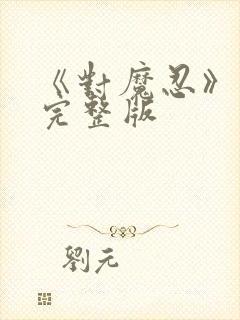 《對魔忍》
完整版
劉元